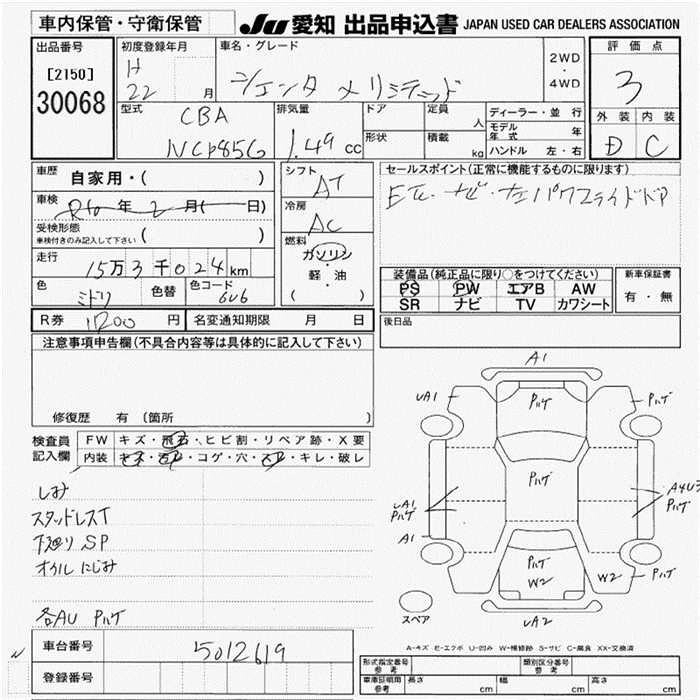 車内保管・守衛保管
JU 愛知 出品申込書 JAPAN USED CAR DEALERS ASSOCIATION
出品番号
[2150]
30068
初度登録年月
H
22 月
車名・グレード
シエンタ メリミテッド
2WD
・
4WD
評価点
3
外装 内装
D C
型式
CBA
NCP85G
排気量
1.49 cc
ドア
形状
定員 人
積載 kg
ディーラー・並行
モデル年式 年
ハンドル 左・右
車歴
自家用・( )
車検
R10年2月( 日)
受検形態
車検付きのみ記入して下さい ( )
走行
15万3千024km
色
ミドリ
色替
色コード
6V6
シフト
AT
冷房
AC
燃料
ガソリン
軽・油
( )
セールスポイント(正常に機能するものに限ります)
ETC・ナビ・ナエパワスライドドア
装備品(純正品に限り○をつけてください)
PS PW エアB AW
SR ナビ TV カワシート
新車保証書
有・無
後日品
R券 11200 円
名変通知期限 月 日
注意事項申告欄(不具合内容等は具体的に記入して下さい)
修復歴 有 (箇所 )
検査員
記入欄
FW キズ・飛石・ヒビ割・リペア跡・X要
内装 キズ・ヨゴレ・コゲ・穴・スレ・キレ・破レ
しみ
スタッドレスT
下廻り SP
オイルにじみ
各AU ハゲ
A1
UA1
ハゲ
ハゲ
ハゲ
UA1
ハゲ
A1
A4U3
ハゲ
ハゲ
W2
W2
ハゲ
UA2
スペア
A-キズ E-エクボ U-凹み W-補修跡 S-サビ C-腐食 XX-交換済
車台番号
5012619
登録番号
形式指定番号
参考
類別区分番号
参考
車庫証明用
参考
長さ cm
幅 cm
高さ cm